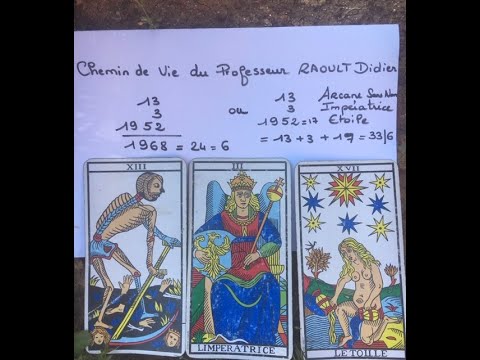 Chemin de Vie du Professeur RAOULT Didier
13 ou 13 Arcane Sans Nom
3 3 Impératrice
1952 1952 = 17 Etoile
1968 = 24 = 6 = 13 + 3 + 17 = 33/6
XIII III XVII
L'IMPERATRICE LE TOILLE